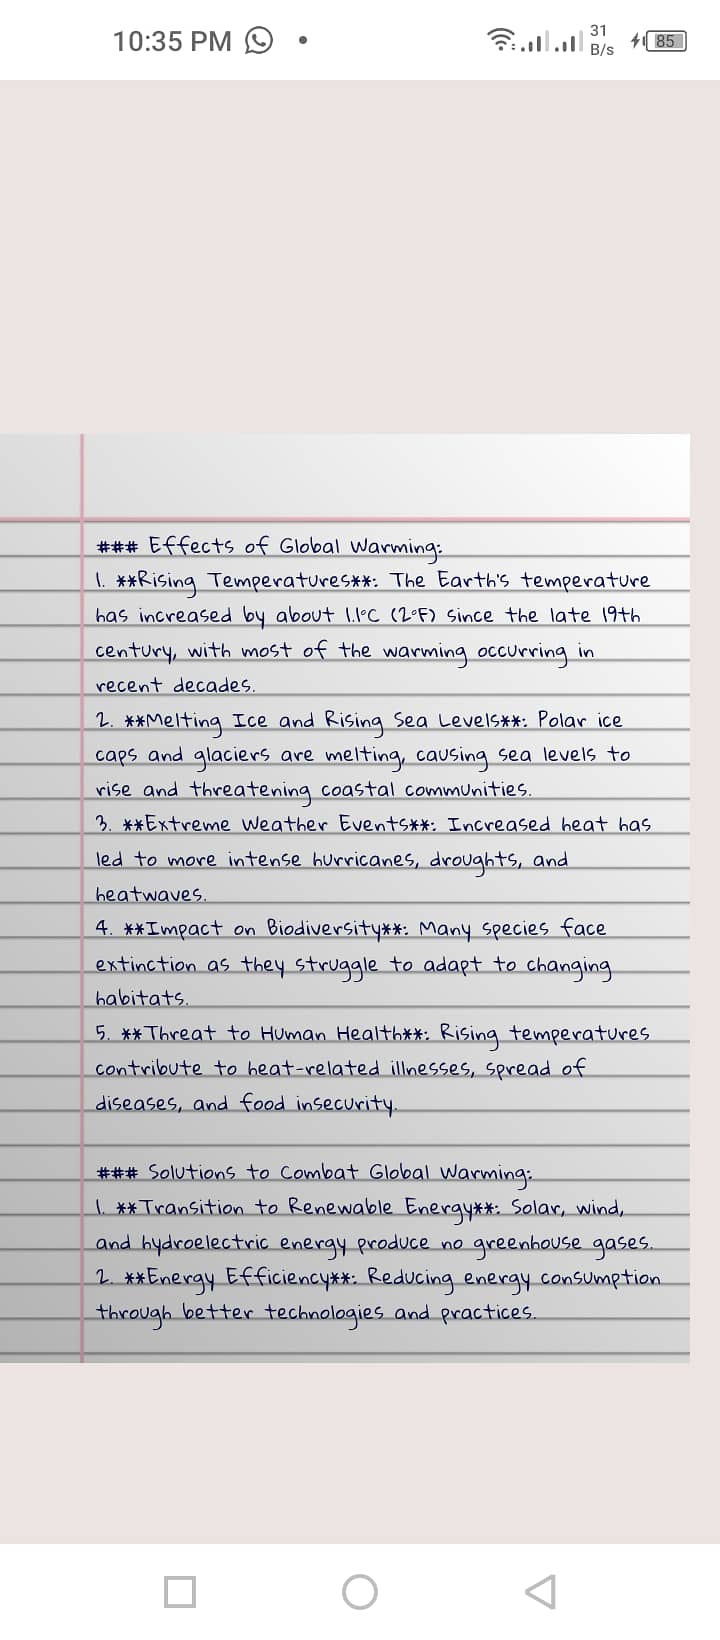 10:35 PM
31
B/s
85
### Effects of Global Warming:
1. **Rising Temperatures**: The Earth's temperature
has increased by about 1.1°C (2°F) since the late 19th
century, with most of the warming occurring in
recent decades.
2. **Melting Ice and Rising Sea Levels**: Polar ice
caps and glaciers are melting, causing sea levels to
rise and threatening coastal communities.
3. **Extreme Weather Events**: Increased heat has
led to more intense hurricanes, droughts, and
heatwaves.
4. **Impact on Biodiversity**: Many species face
extinction as they struggle to adapt to changing
habitats.
5. **Threat to Human Health**: Rising temperatures
contribute to heat-related illnesses, spread of
diseases, and food insecurity.
### Solutions to Combat Global Warming:
1. **Transition to Renewable Energy**: Solar, wind,
and hydroelectric energy produce no greenhouse gases.
2. **Energy Efficiency**: Reducing energy consumption
through better technologies and practices.